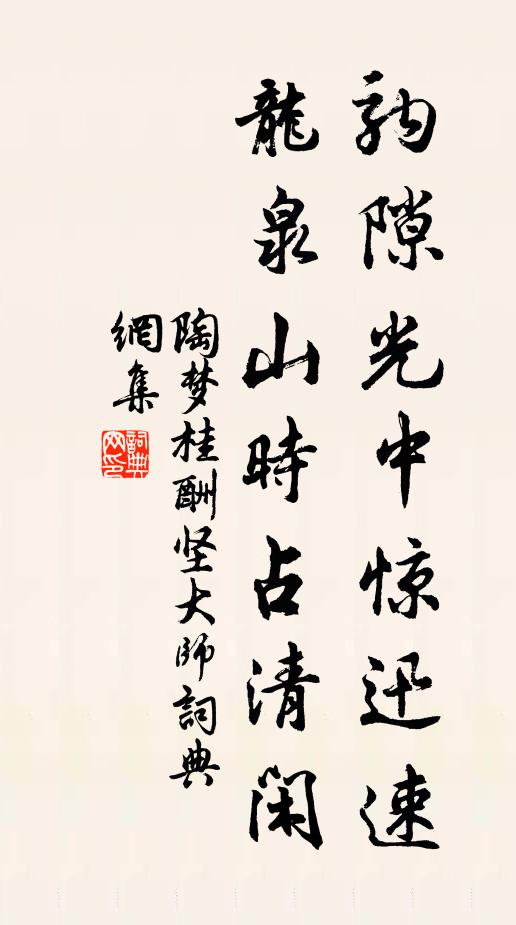 驹隙光中惊迅速
龍泉山時占清閑
陶梦桂酬坚大师詞典
網集
詞典
网印